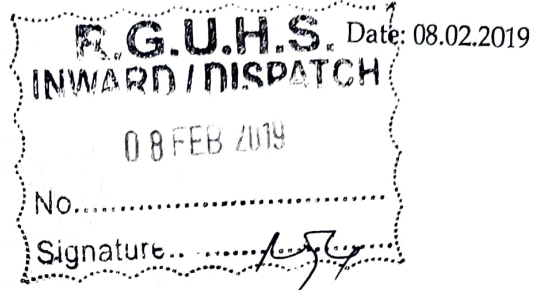 R.G.U.H.S. Date: 08.02.2019
INWARD / DISPATCH
08 FEB 2019
No..............................
Signature..